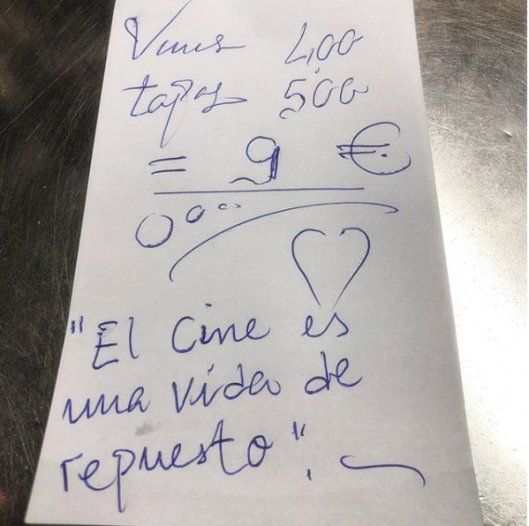 Vinos 4,00
tapas 5,00
= 9 €
"El Cine es
una vida de
repuesto".